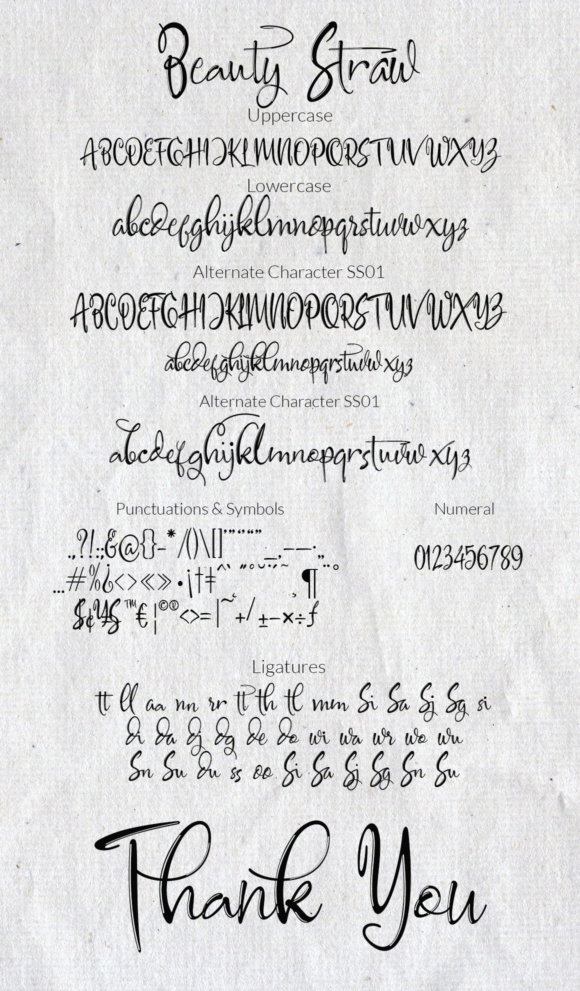 Beauty Straw
Uppercase
ABCDEFGHIJKLMNOPQRSTUVWXYZ
Lowercase
abcdefghijklmnopqrstuvwxyz
Alternate Character SS01
ABCDEFGHIJKLMNOPQRSTUVWXYZ
abcdefghijklmnopqrstuvwxyz
Alternate Character SS01
abcdefghijklmnopqrstuvwxyz
Punctuations & Symbols
.,?!:;&@{}-*/()\[]'"‘“” _,—–·„
...#%¿<>«»•¡†‡^` ˝°˘¨˜ ¸¶ ¨°
$¢¥$™€¦©®<>=|~+/±−×÷ƒ
Numeral
0123456789
Ligatures
tt ll aa nn rr tt th tl mm Si Sa Sj Sg si
di da dj dg de do wi wa wr wo wu
Sn Su du ss oo Si Sa Sj Sg Sn Su
Thank You